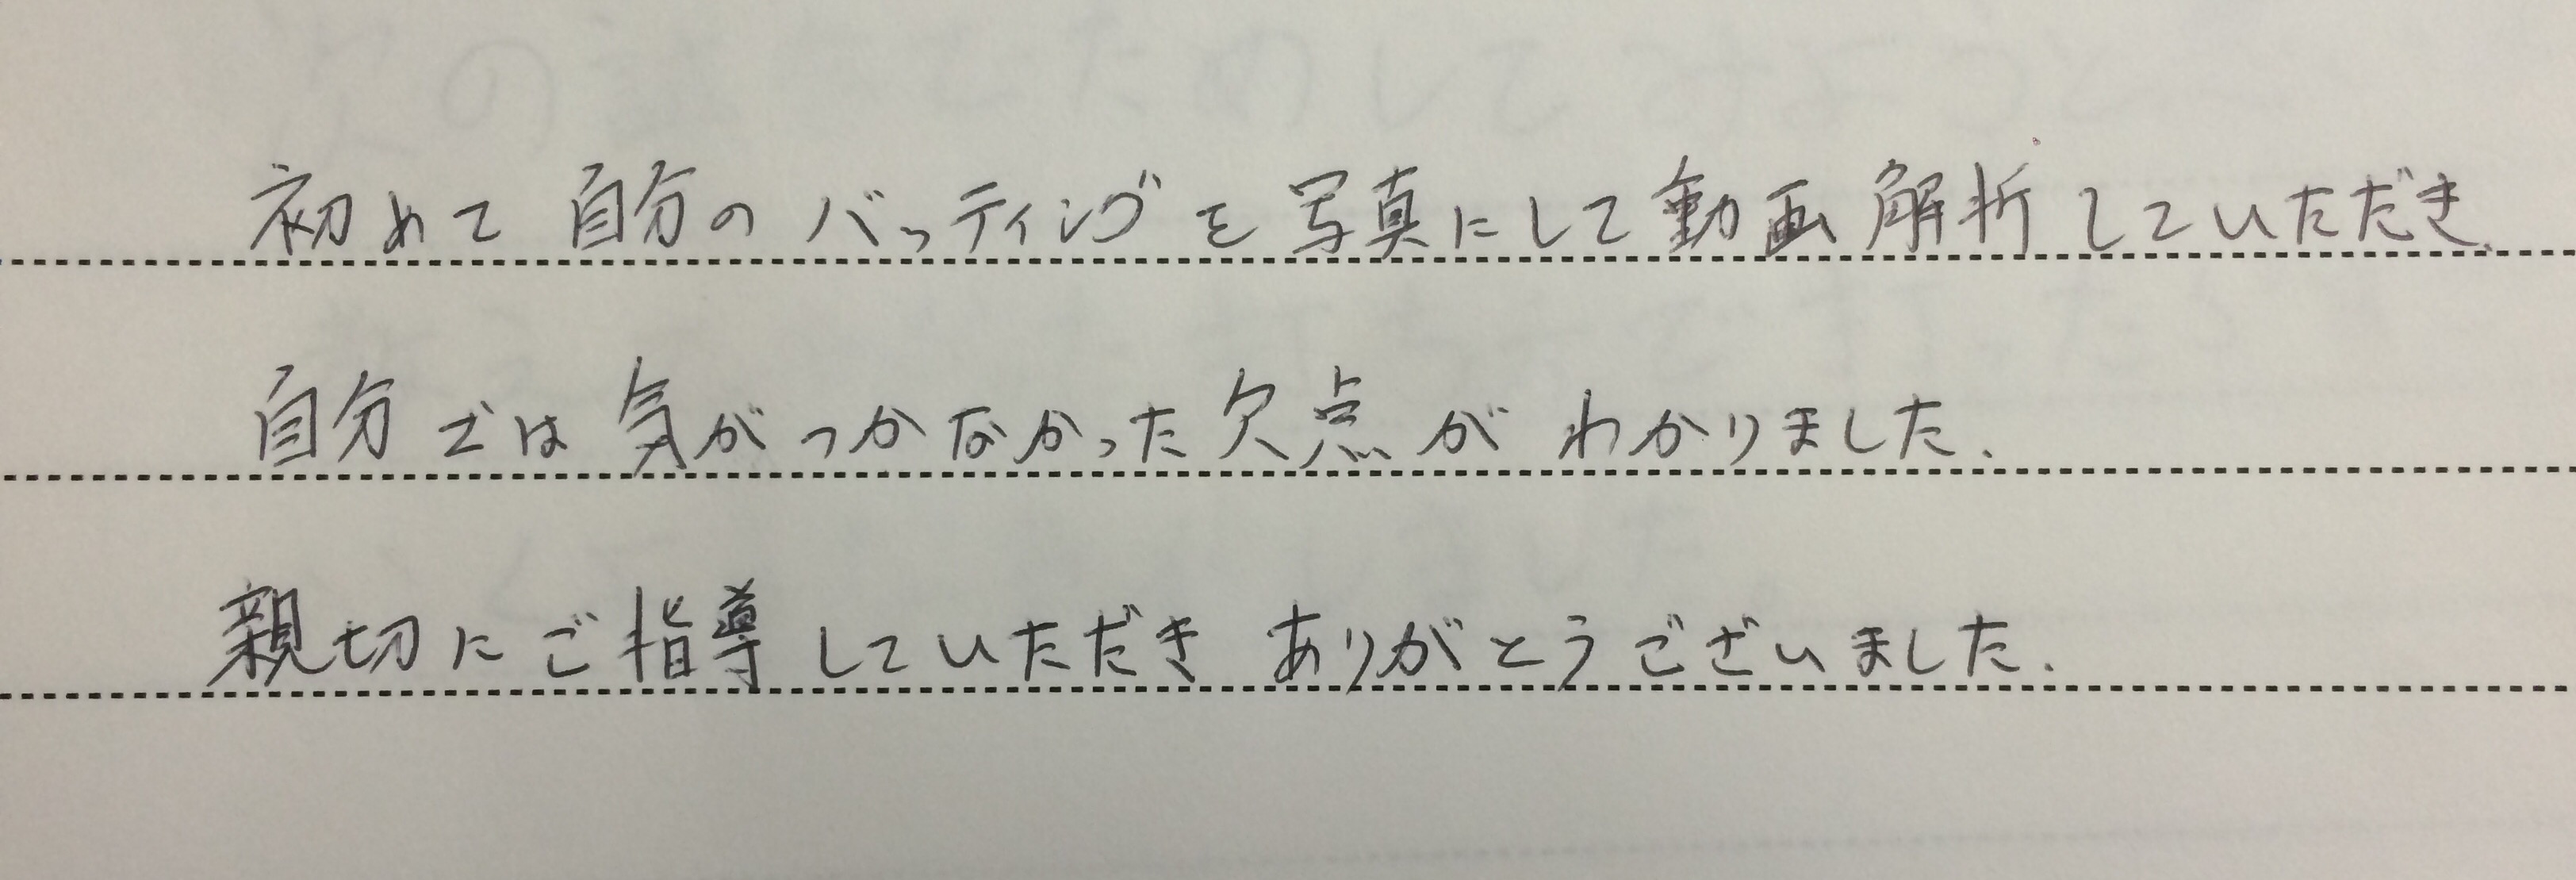 初めて自分のバッティングを写真にして動画解析していただき、
自分では気がつかなかった欠点がわかりました.
親切にご指導していただき ありがとうございました.